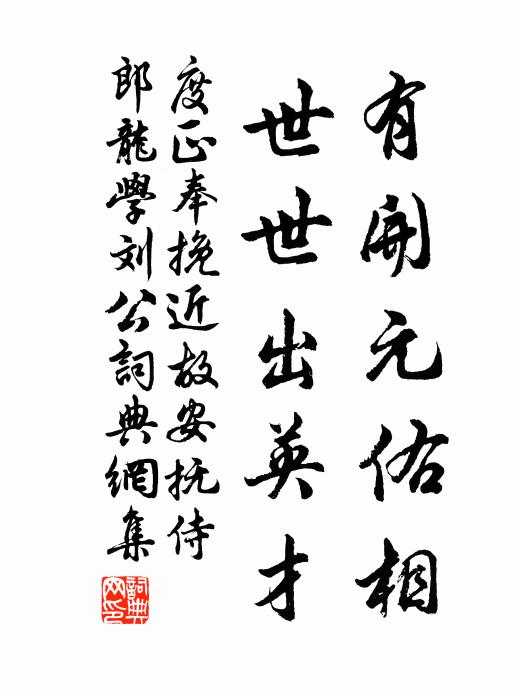 有開元佑相
世世出英才
度正奉挽近故安抚侍
郎龍學刘公詞典網集
詞典
网印